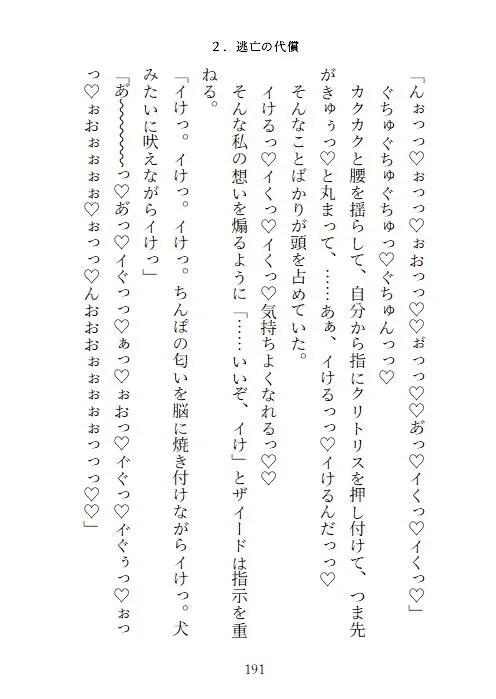 2．逃亡の代償
「んぉっっ♡ぉっっ♡ぉおっっ♡♡ぉ゛っっ♡♡あ゛っ♡イくっ♡イくっ♡」
ぐちゅぐちゅぐちゅっ♡ぐちゅんっっ♡
カクカクと腰を揺らして、自分から指にクリトリスを押し付けて、つま先
がきゅぅっ♡と丸まって、……あぁ、イけるっっ♡イけるんだっっ♡
そんなことばかりが頭を占めていた。
イけるっ♡イくっ♡イくっ♡気持ちよくなれるっ♡♡
そんな私の想いを煽るように「……いいぞ、イけ」とザイードは指示を重
ねる。
「イけっ。イけっ。イけっ。ちんぽの匂いを脳に焼き付けながらイけっ。犬
みたいに吠えながらイけっ」
「あ゛〜〜〜〜〜っ♡あ゛っ♡イぐっっ♡ぁっ♡ぉおっ♡イ゛ぐっ♡イ゛ぐぅっ♡ぉっ
っ♡ぉおぉぉぉぉ♡ぉっっ♡んおおおぉぉぉぉぉっっっ♡♡」
191